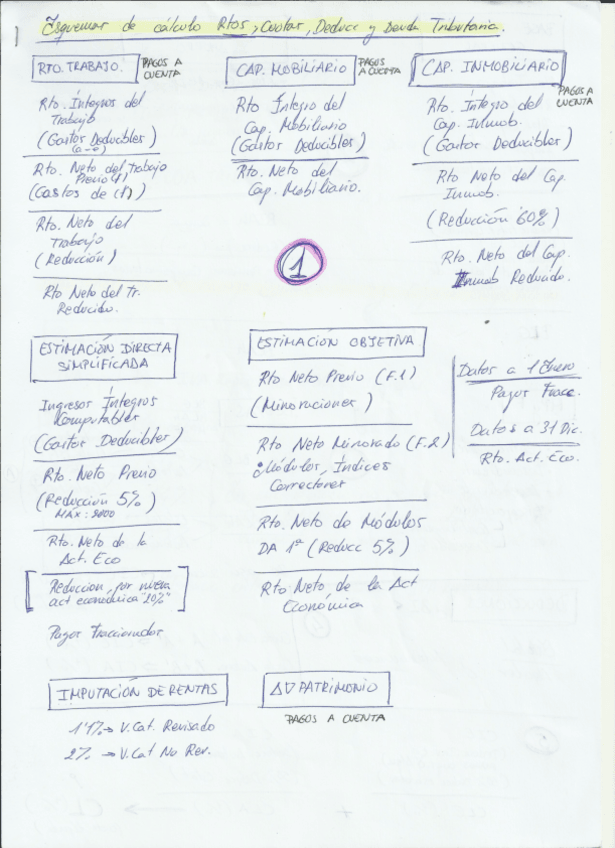 Esquemas de cálculo Rtos, Cuotas, Deducc y Deuda Tributaria.
RTO. TRABAJO.
PAGOS A
CUENTA
Rto. Íntegros del
Trabajo
(Gastos Deducibles)
(a-e)
Rto. Neto del trabajo
Previo (1)
(Gastos de (f))
Rto. Neto del
Trabajo
(Reducción)
Rto Neto del Tr.
Reducido.
CAP. MOBILIARIO
PAGOS
A CUENTA
Rto Íntegro del
Cap. Mobiliario
(Gastos Deducibles)
Rto. Neto del
Cap. Mobiliario.
1
CAP. INMOBILIARIO
PAGOS A
CUENTA
Rto. Íntegro del
Cap. Inmob.
(Gastos Deducibles)
Rto Neto del Cap.
Inmob.
(Reducción 60%)
Rto. Neto del Cap.
Inmob Reducido.
ESTIMACIÓN DIRECTA
SIMPLIFICADA
Ingresos Íntegros
Computables
(Gastos Deducibles)
Rto. Neto Previo
(Reducción 5%)
MÁX: 2000
Rto. Neto de la
Act. Eco
Reduccion por nueva
act economica "20%"
Pagos Fraccionados
ESTIMACIÓN OBJETIVA
Rto Neto Previo (F.1)
(Minoraciones)
Rto Neto Minorado (F.2)
Módulos, Índices
Correctores
Rto. Neto de Módulos
DA 1ª (Reducc 5%)
Rto Neto de la Act
Económica
Datos a 1 Enero
Pagos Fracc.
Datos a 31 Dic.
Rto. Act. Eco.
IMPUTACIÓN DE RENTAS
1'1% → V. Cat. Revisado
2% → V. Cat No Rev.
Δ∇ PATRIMONIO
PAGOS A CUENTA